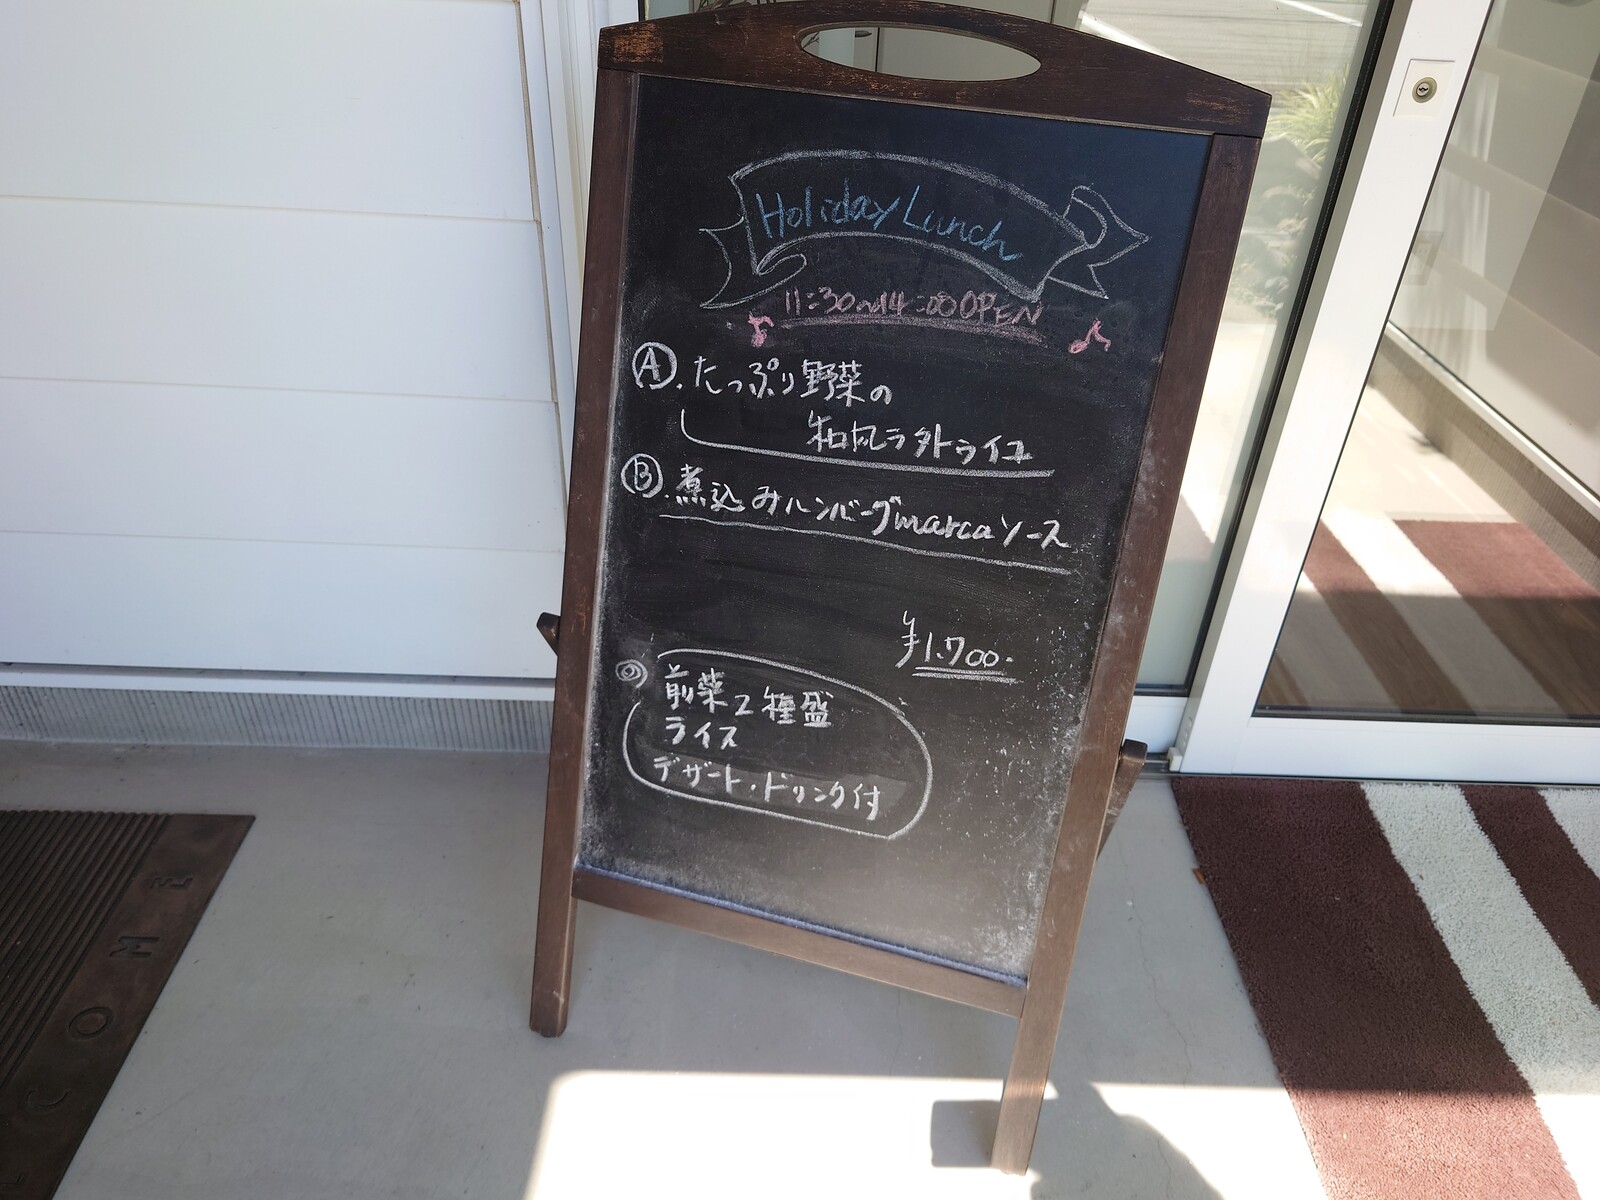 Holiday Lunch
11:30~14:00 OPEN
Ⓐ. たっぷり野菜の
和風ラタトゥイユ
Ⓑ. 煮込みハンバーグmarcaソース
¥1.700.
◎ 前菜2種盛
ライス
デザート・ドリンク付